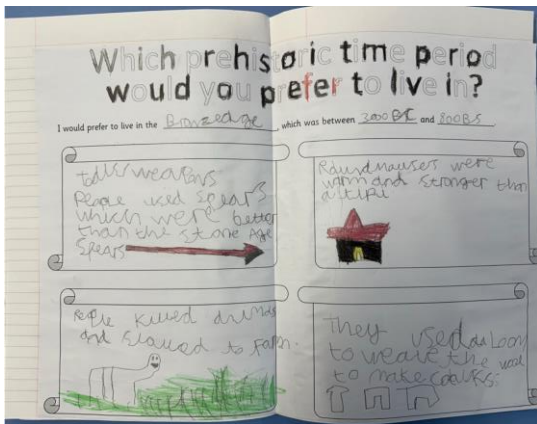 Which prehistoric time period
would you prefer to live in?
I would prefer to live in the Bronzeage, which was between 3000 BC and 800BS
weapons
People used Spears
which were better
than the Stone Age
Spears
Roundhauses were
warm and stronger than
a tipi
People killed
and to farm.
They used a Loom
to weave the wool
to make